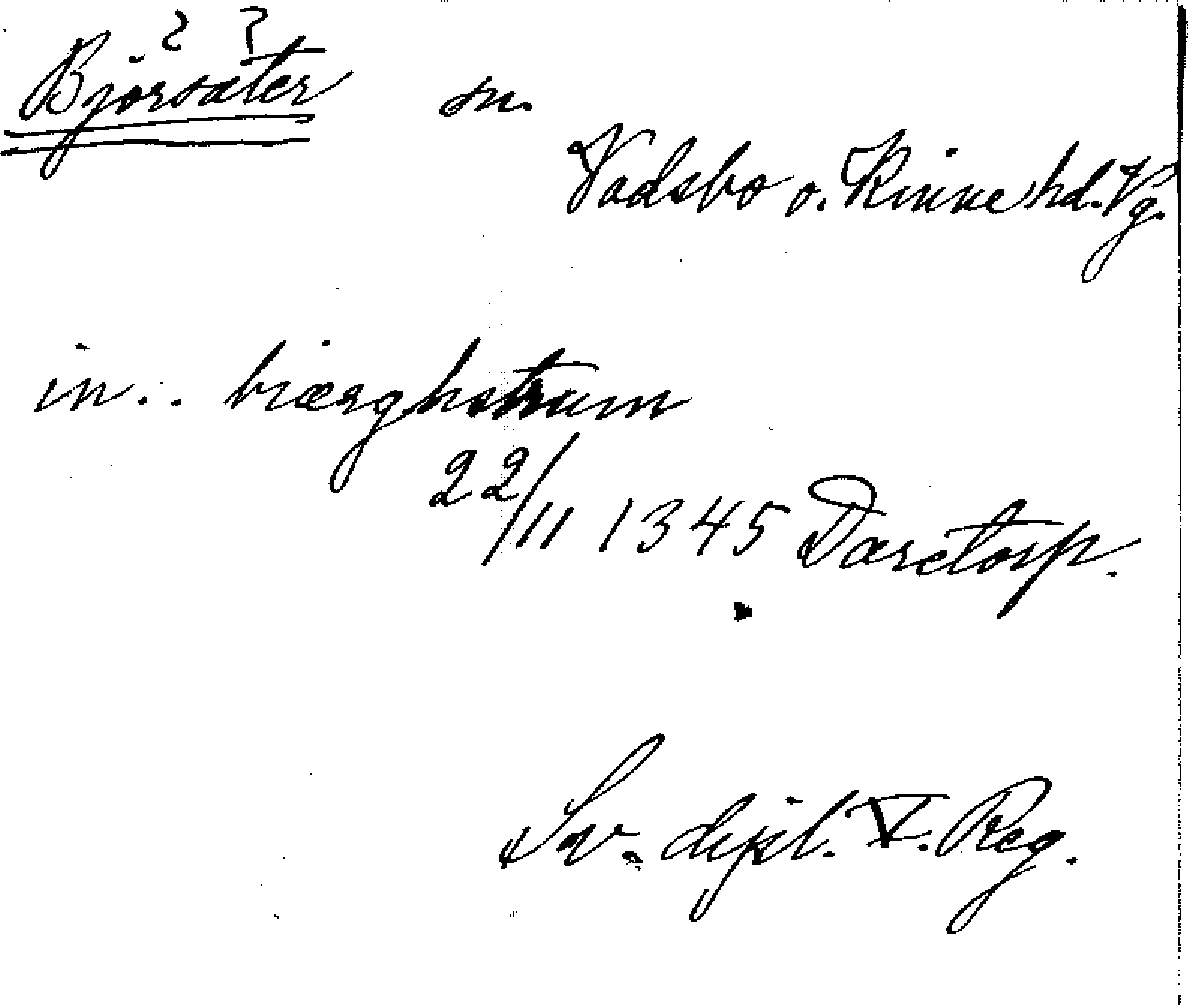 ? ?
Björsäter sn.
Vadsbo o. Kinne hd. Vg.
in.. biærghstrum
22/11 1345 Daretorp.
Sv. dipl. V. Reg.